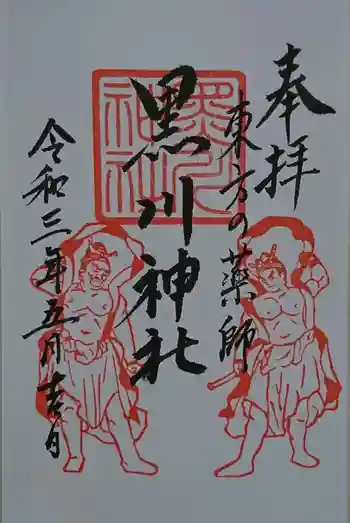 奉拝
東方の薬師
黒川神社
令和三年五月吉日
黒川
神社